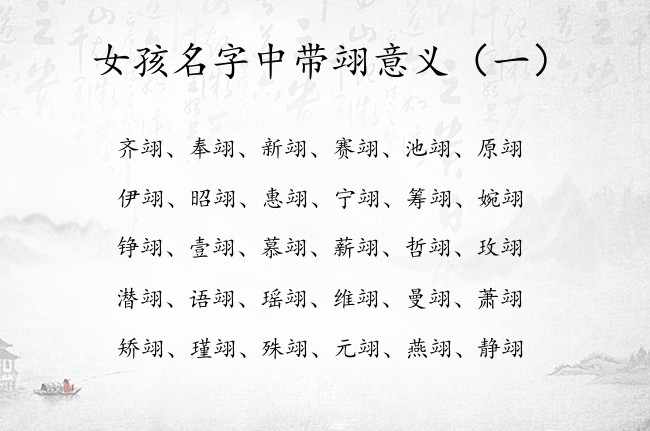 女孩名字中带翊意义（一）
齐翊、奉翊、新翊、赛翊、池翊、原翊
伊翊、昭翊、惠翊、宁翊、筹翊、婉翊
铮翊、壹翊、慕翊、薪翊、哲翊、玫翊
潜翊、语翊、瑶翊、维翊、曼翊、萧翊
矫翊、瑾翊、殊翊、元翊、燕翊、静翊